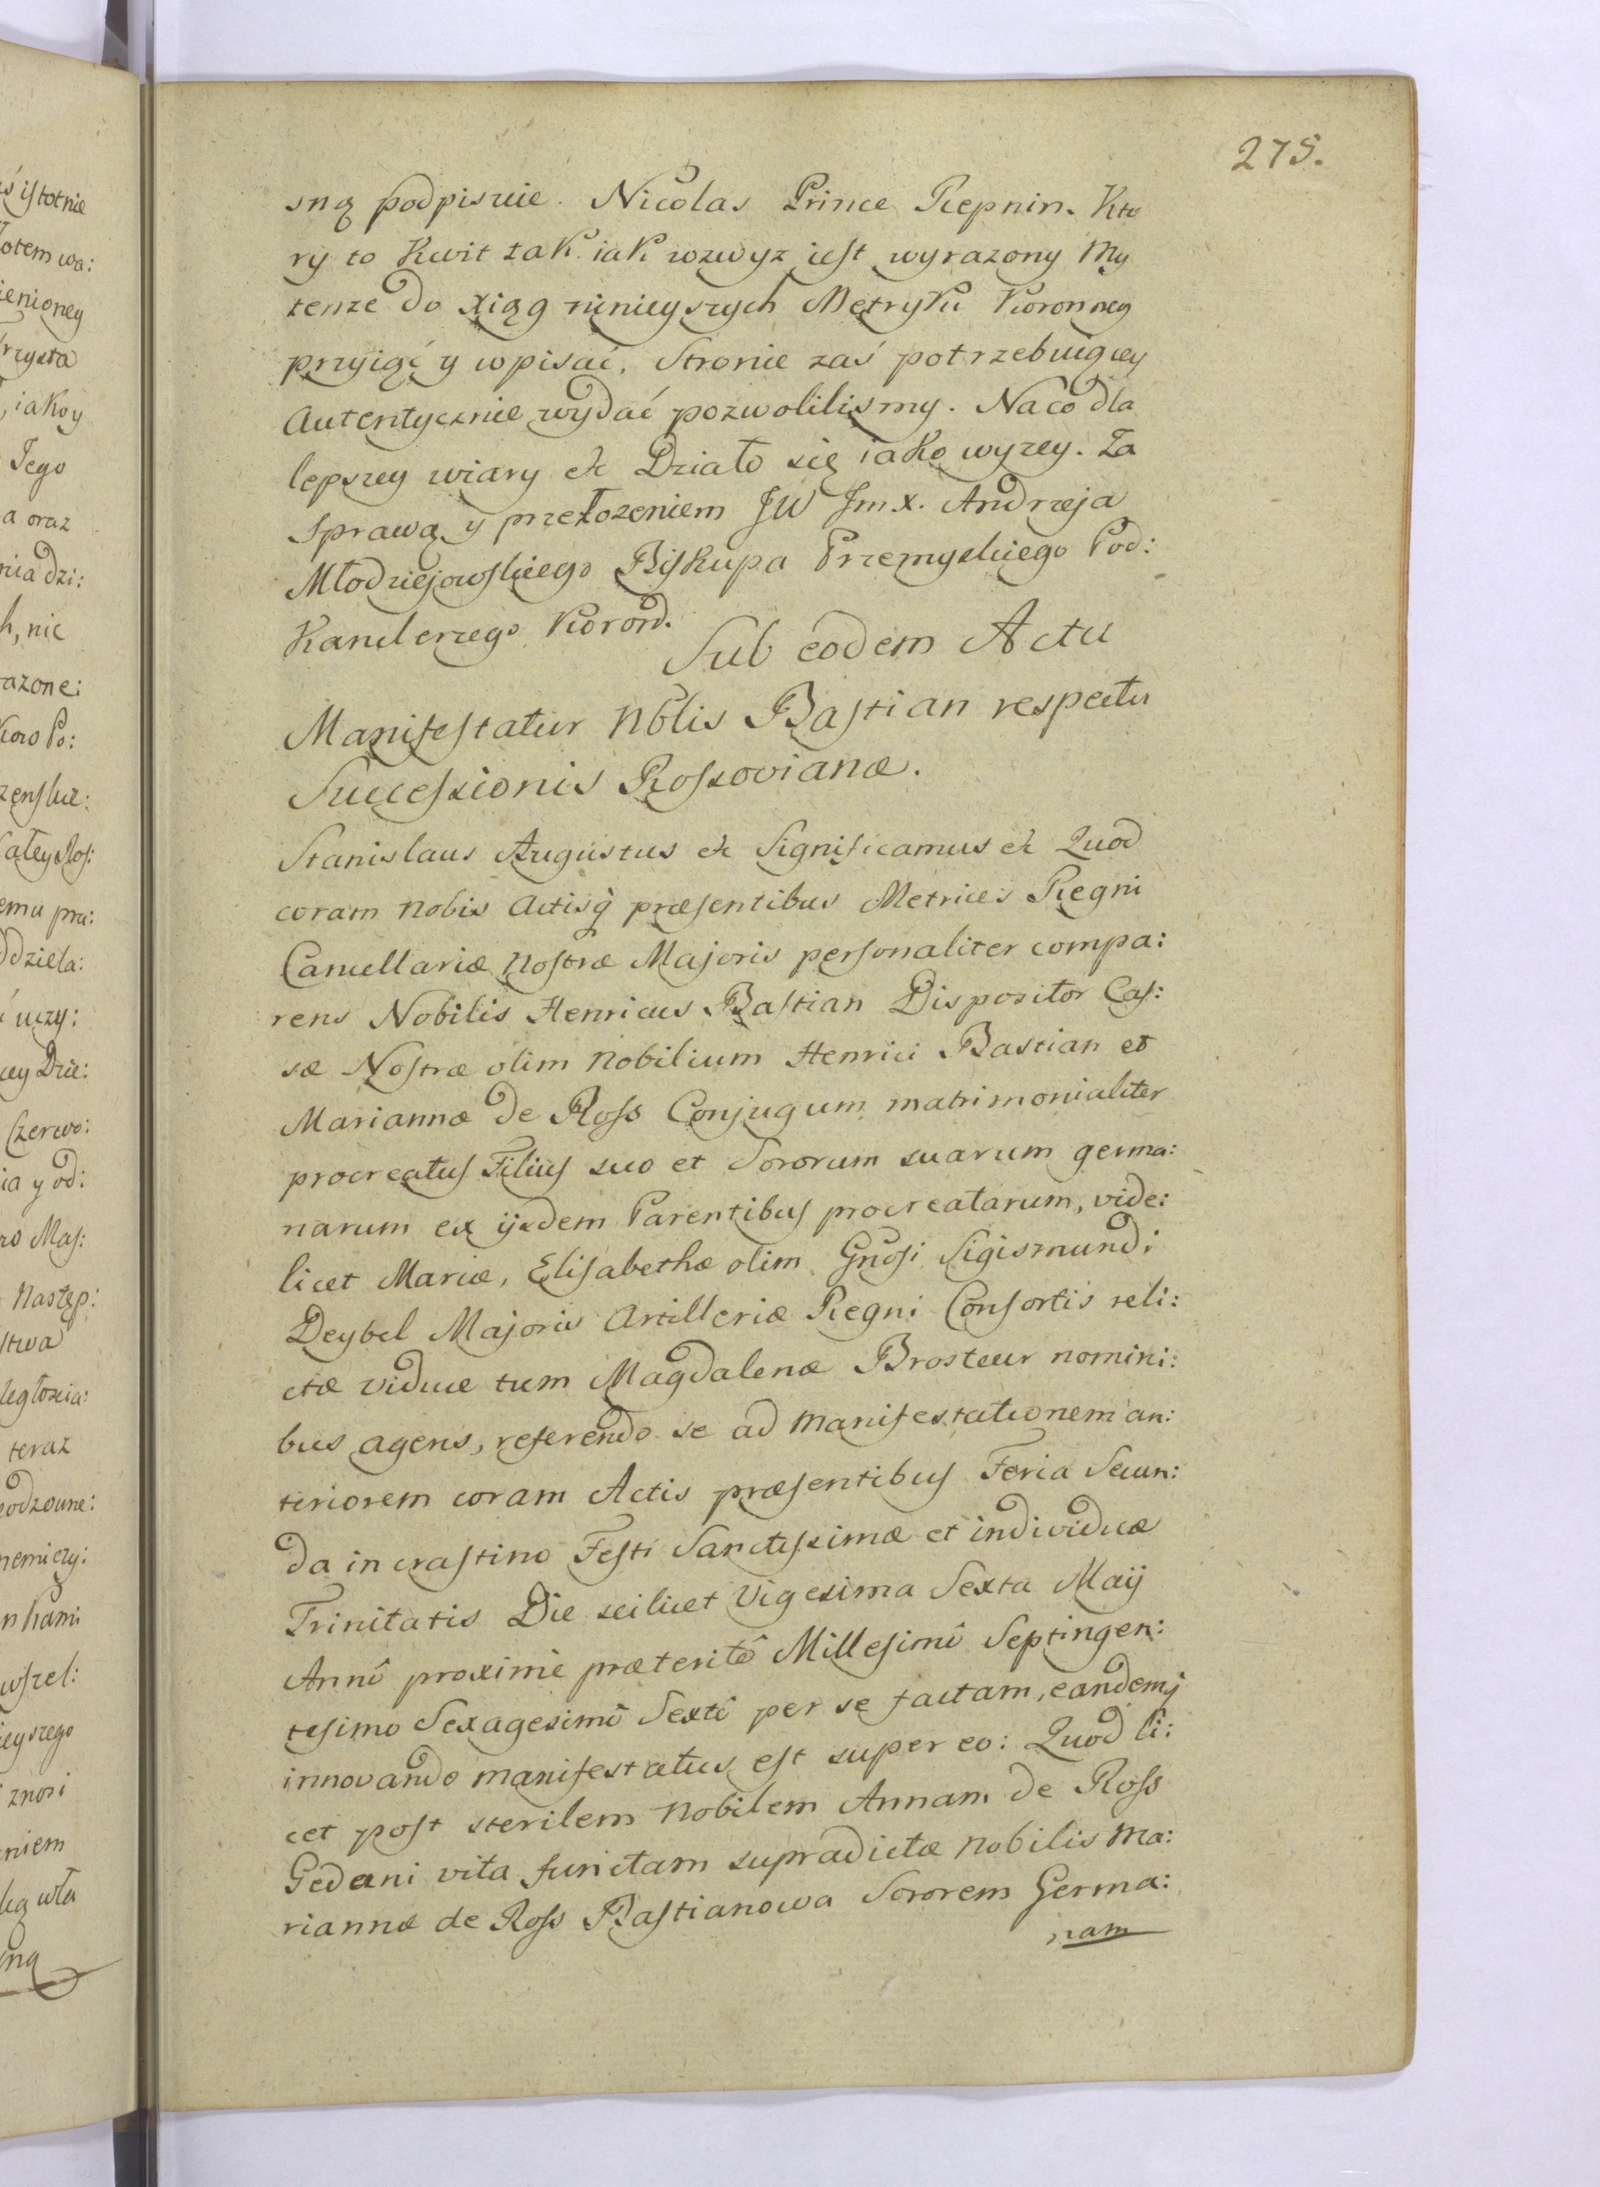 275.
sną podpisuie. Nicolas Prince Repnin. Kto
ry to Kwit tak iak wzwyz iest wyrazony My
tenze do xiąg ninieyszych Metryki Koronney
przyiąć y wpisać, Stronie zaś potrzebuiącey
Autentycznie wydać pozwolilismy. Na co dla
lepszey wiary &c Działo się iako wyzey. Za
Sprawą y przełozeniem JW Jmx. Andrzeja
Młodziejowskiego Biskupa Przemyskiego Pod:
Kanclerzego Koron.
Sub eodem Actu
Manifestatur Nblis Bastian respectu
Successionis Rossovianæ.
Stanislaus Augustus &c Significamus &c Quod
coram nobis Actisq præsentibus Metrices Regni
Cancellariæ Nostræ Majoris personaliter compa:
rens Nobilis Henricus Bastian Dispositor Cas:
sæ Nostræ olim Nobilium Henrici Bastian et
Mariannæ de Ross Conjugum matrimonialiter
procreatus Filius suo et Sororum suarum germa:
narum ex ijsdem Parentibus procreatarum, vide:
licet Mariæ, Elisabethæ olim Gnosi Sigismundi
Deybel Majoris Artilleriæ Regni Consortis reli:
ctæ viduæ tum Magdalenæ Brosteur nomini:
bus agens, referendo se ad Manifestationem an:
teriorem coram Actis præsentibus Feria Secun:
da in crastino Festi Sanctissimæ et individuæ
Trinitatis Die scilicet Vigesima Sexta Maij
Annô proxime præteritô Millesimô Septingen:
tesimo Sexagesimô Sextô per se factam, eandemq
innovando manifestatus est super eo: Quod li:
cet post sterilem Nobilem Annam de Ross
Gedani vita functam supradictæ Nobilis Ma:
riannæ de Ross Bastianowa Sororem Germa:
nam